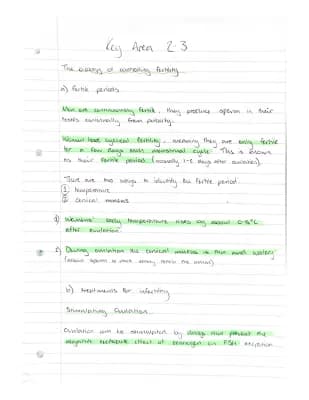 Key Area 2.3
The biology of controlling fertility
a) Fertile periods
Men are continuously fertile, they produce sperm in their
testes continually from puberty.
Women have cyclical fertility, meaning they are only fertile
for a few days each menstrual cycle. This is known
as their fertile period (normally 1-2 days after ovulation).
There are two ways to identify the fertile period.
① Temperature
② Cervical mucus
① Womens' body temperature rises by around 0.5°C
after ovulation.
② During ovulation the cervical mucus is thin and watery
(allows sperm to more easily reach the
b) treatments for infertility
Stimulating Ovulation
Ovulation can be stimulated by drugs that prevent the
negative feedback effect of oestrogen on FSH secretion